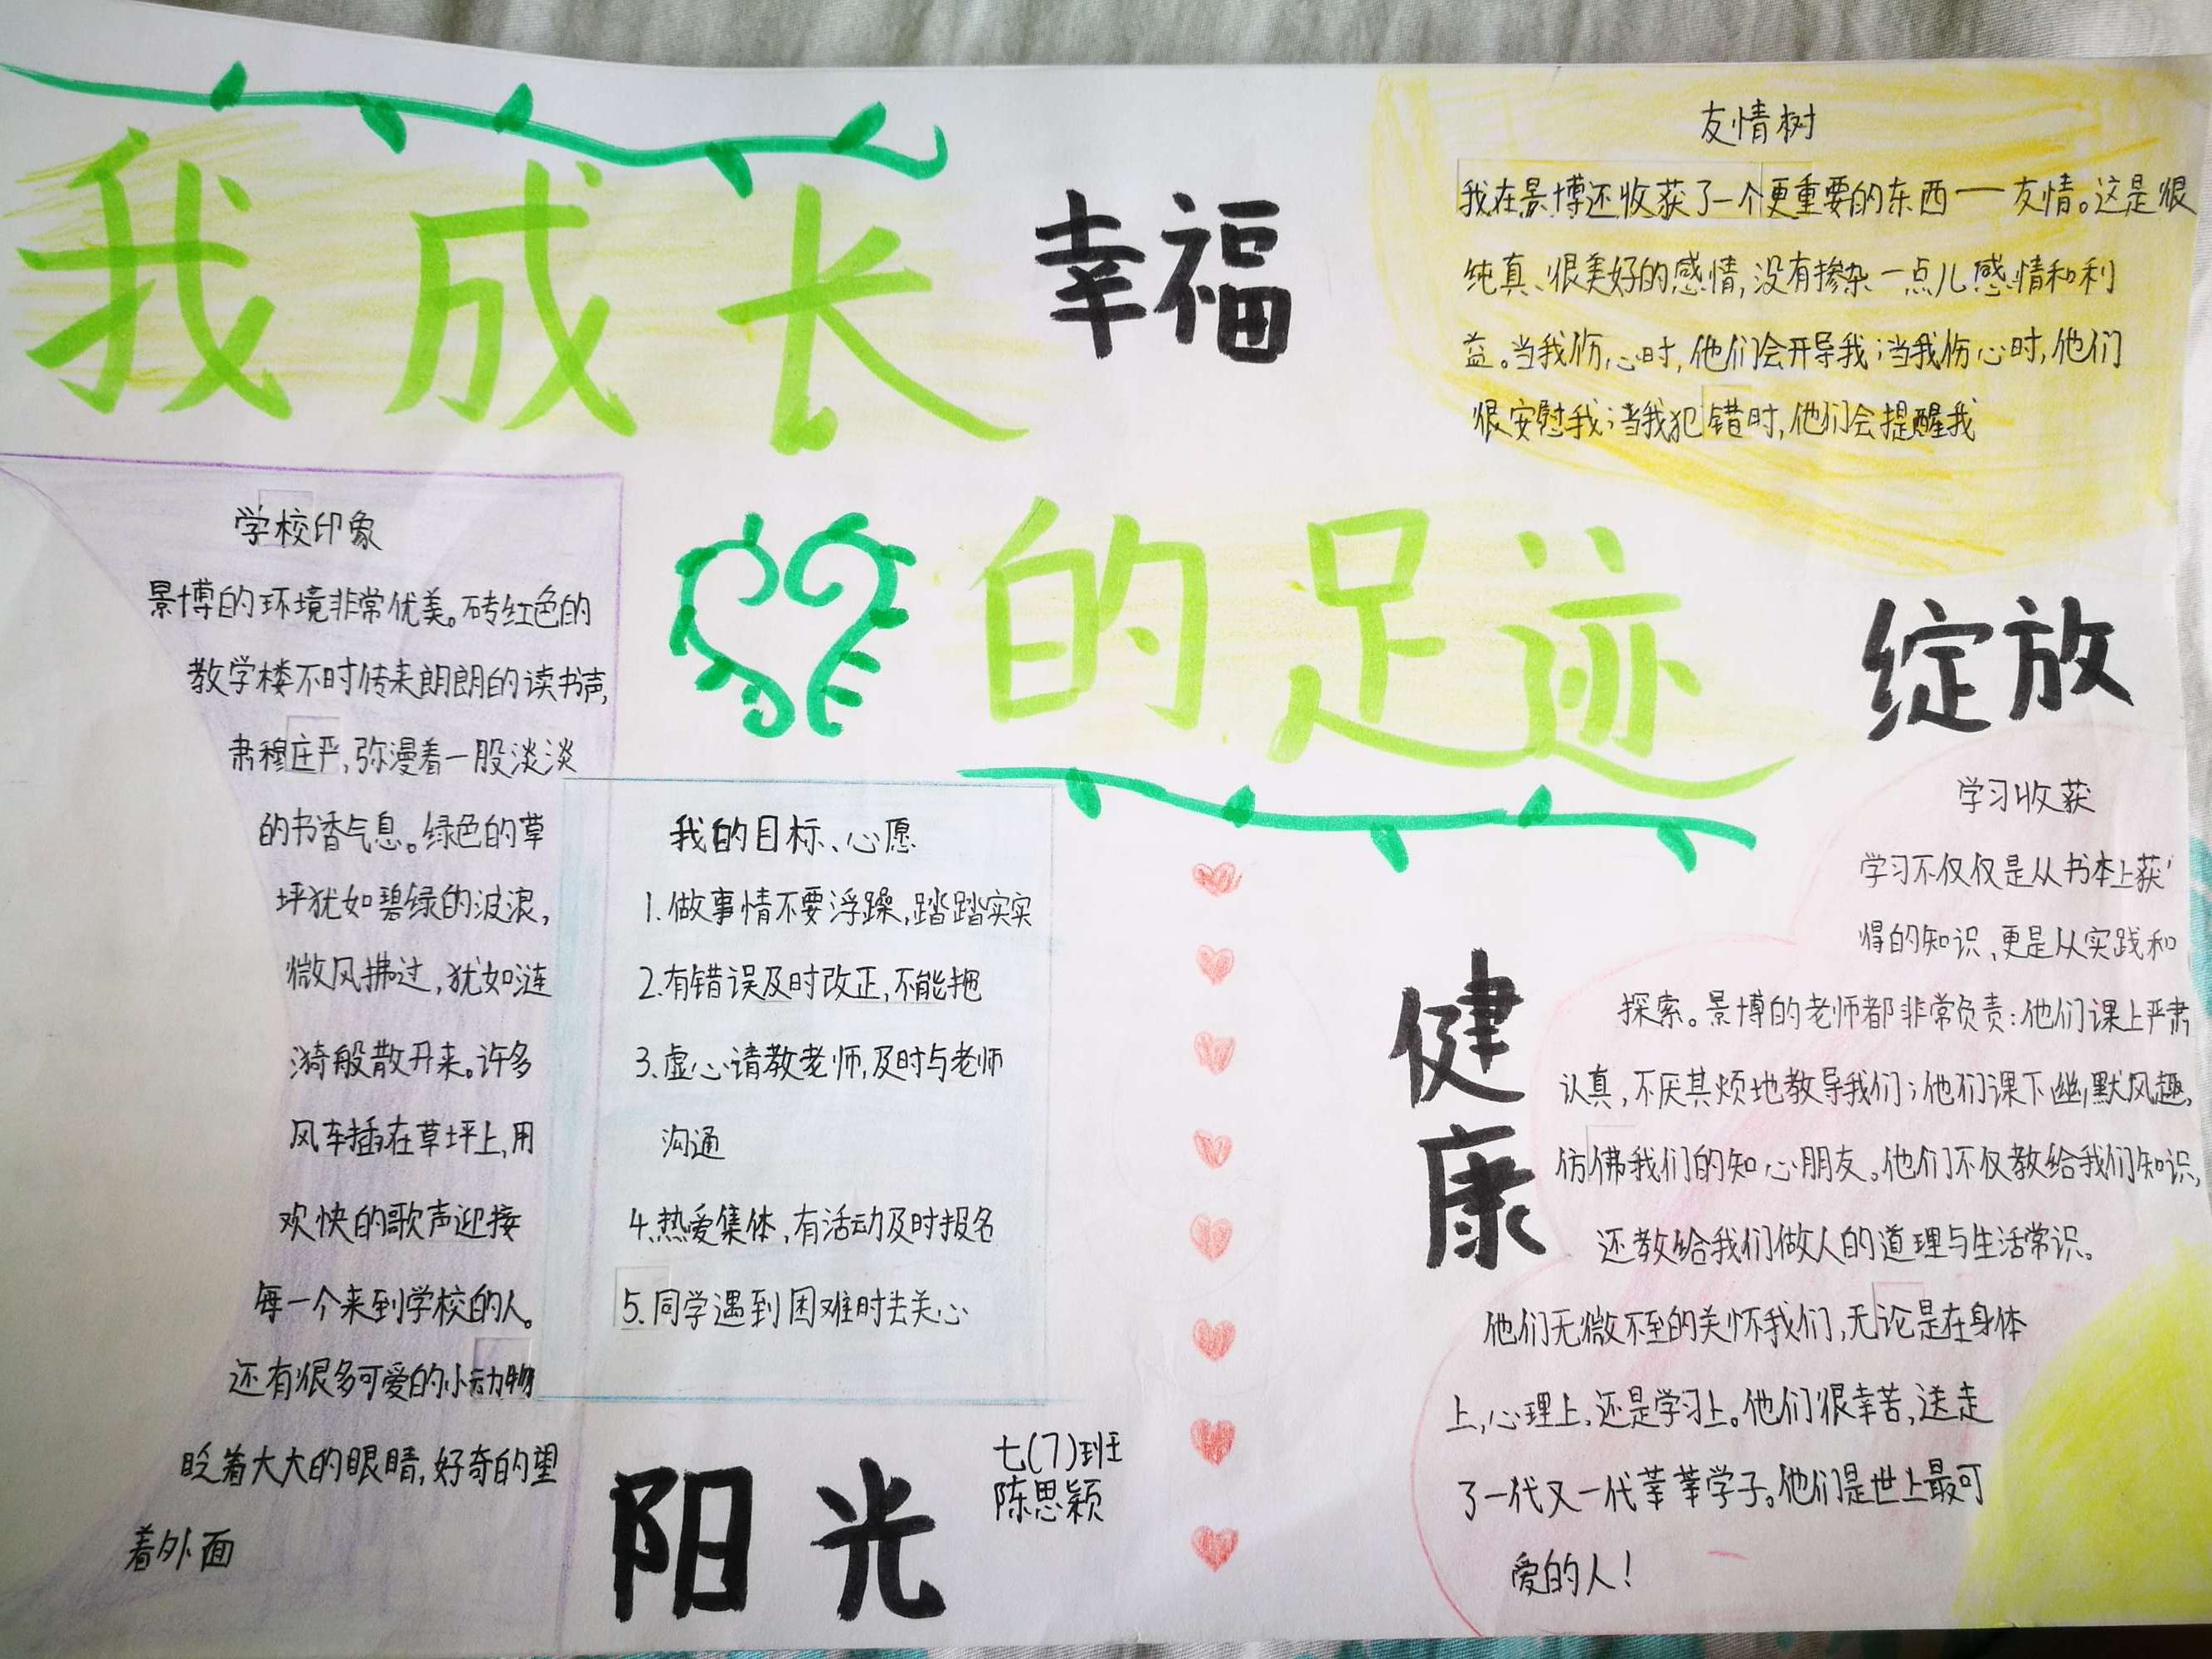 我成长
幸福
的足迹
绽放
友情树
我在景博还收获了一个更重要的东西——友情。这是很
纯真、很美好的感情,没有掺杂一点儿感情和利
益。当我伤心时,他们会开导我;当我伤心时,他们
很安慰我;当我犯错时,他们会提醒我
学校印象
景博的环境非常优美。砖红色的
教学楼不时传来朗朗的读书声,
肃穆庄严,弥漫着一股淡淡
的书香气息。绿色的草
坪犹如碧绿的波浪,
微风拂过,犹如涟
漪般散开来。许多
风车插在草坪上,用
欢快的歌声迎接
每一个来到学校的人。
还有很多可爱的小动物
眨着大大的眼睛,好奇的望
着外面
我的目标、心愿
1.做事情不要浮躁,踏踏实实
2.有错误及时改正,不能拖
3.虚心请教老师,及时与老师
沟通
4.热爱集体,有活动及时报名
5.同学遇到困难时去关心
阳光
七(7)班
陈思颖
健
康
学习收获
学习不仅仅是从书本上获
得的知识,更是从实践和
探索。景博的老师都非常负责:他们课上严肃
认真,不厌其烦地教导我们;他们课下幽默风趣,
仿佛我们的知心朋友。他们不仅教给我们知识,
还教给我们做人的道理与生活常识。
他们无微不至的关怀我们,无论是在身体
上,心理上,还是学习上。他们很辛苦,送走
了一代又一代莘莘学子。他们是世上最可
爱的人!